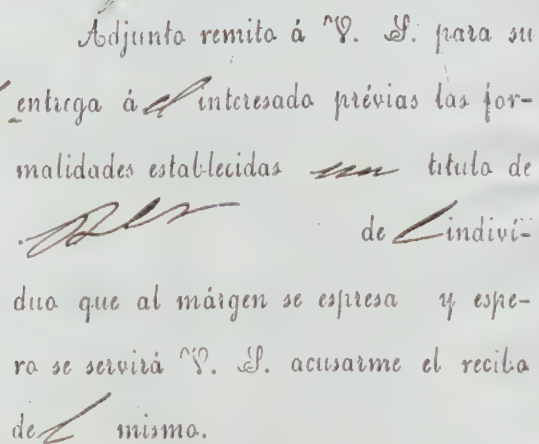 Adjunto remito á V. S. para su
entrega á el interesado prévias las for-
malidades establecidas un titulo de
de l indiví-
duo que al márgen se espresa y espe-
ro se servirá V. S. acusarme el recibo
de l mismo.